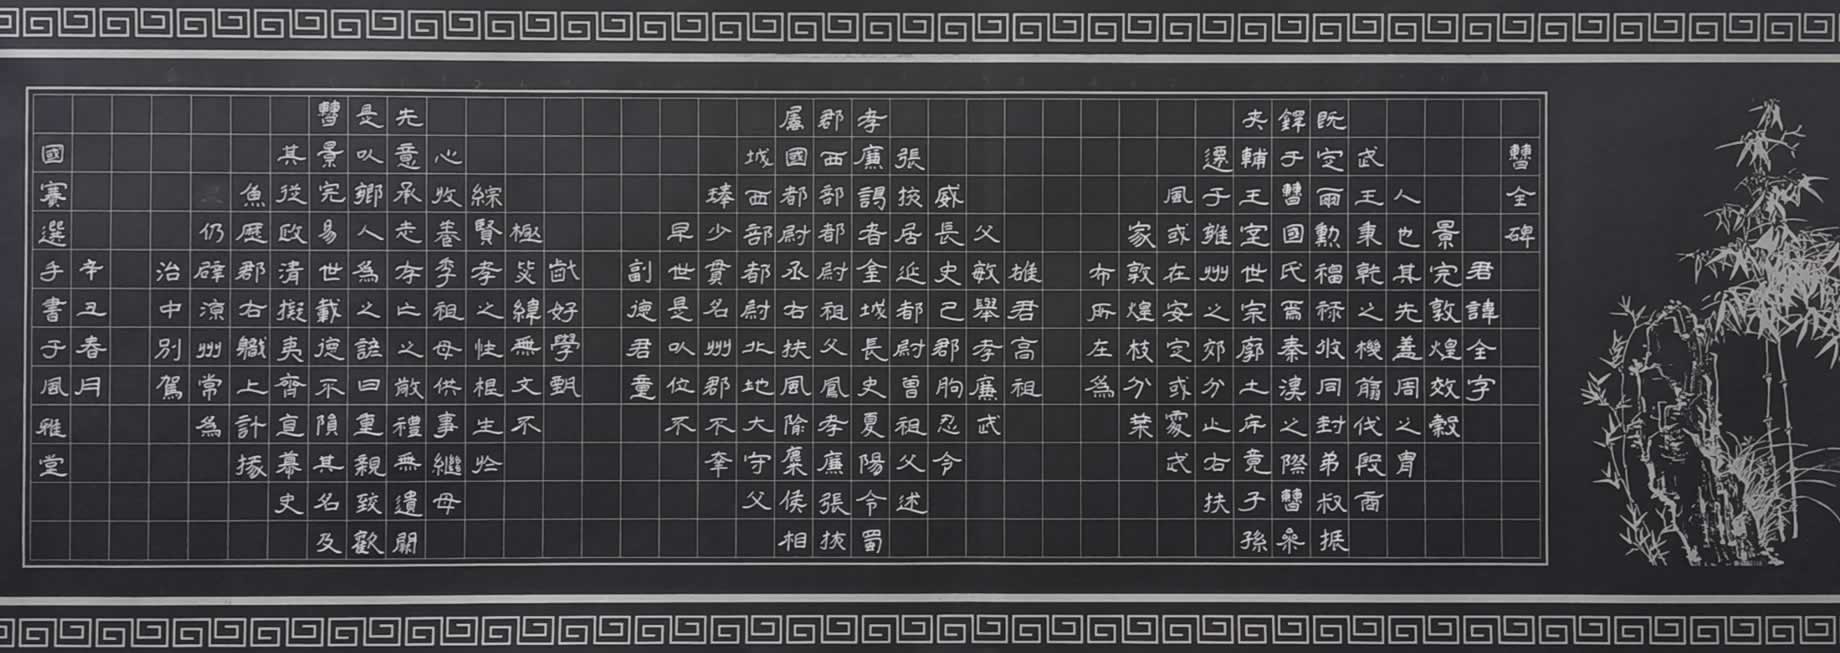 曹全碑
君諱全字
景完敦煌效穀
人也其先蓋周之胄
武王秉乾之機翦伐殷商
既定爾勳福祿攸同封弟叔振
鐸于曹國氏焉秦漢之際曹參
夾輔王室世宗廓土斥竟子孫
遷于雍州之郊分止右扶
風或在安定或處武
家敦煌枝分葉
布所在為
雄君高祖
父敏舉孝廉武
威長史巴郡朐忍令
張掖居延都尉曾祖父述
孝廉謁者金城長史夏陽令蜀
郡西部都尉祖父鳳孝廉張掖
屬國都尉丞右扶風隃麋侯相
城西部都尉北地大守父
琫少貫名州郡不幸
早世是以位不
副德君童
齔好學甄
極毖緯無文不
綜賢孝之性根生於
心收養季祖母供事繼母
先意承志存亡之敬禮無遺闕
是以鄉人為之諺曰重親致歡
曹景完易世載德不隕其名及
其從政清擬夷齊直慕史
魚歷郡右職上計掾
仍辟涼州常為
治中別駕
辛丑春月
國賽選手書于風雅堂